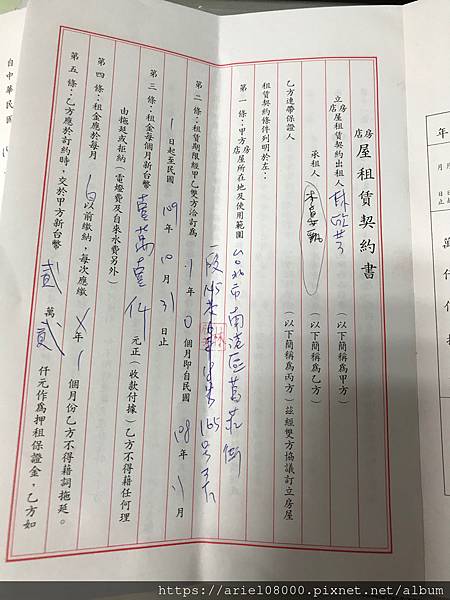 房店屋租賃契約書
立房店屋租賃契約出租人 (以下簡稱為甲方)
承租人 (以下簡稱為乙方)
乙方連帶保證人 (以下簡稱為丙方) 茲經雙方協議訂立房屋
租賃契約條件列明於左:
第一條:甲方房店屋所在地及使用範圍 台北市南港區 街
段 巷 號
第二條:租賃期限經甲乙雙方洽訂為 1 年 0 個月即自民國 108 年 11 月
1 日起至民國 109 年 10 月 31 日止
第三條:租金每個月新台幣 壹萬壹仟 元正(收款付據)乙方不得藉任何理
由拖延或拒納(電燈費及自來水費另外)
第四條:租金應於每月 以前繳納,每次應繳 年 1 個月份乙方不得藉詞拖延。
第五條:乙方應於訂約時,交於甲方新台幣 貳 萬 貳 仟元作為押租保證金,乙方如
自中華民國
年
月 月
日 日
止
https://ariel08000.pixnet.net/album